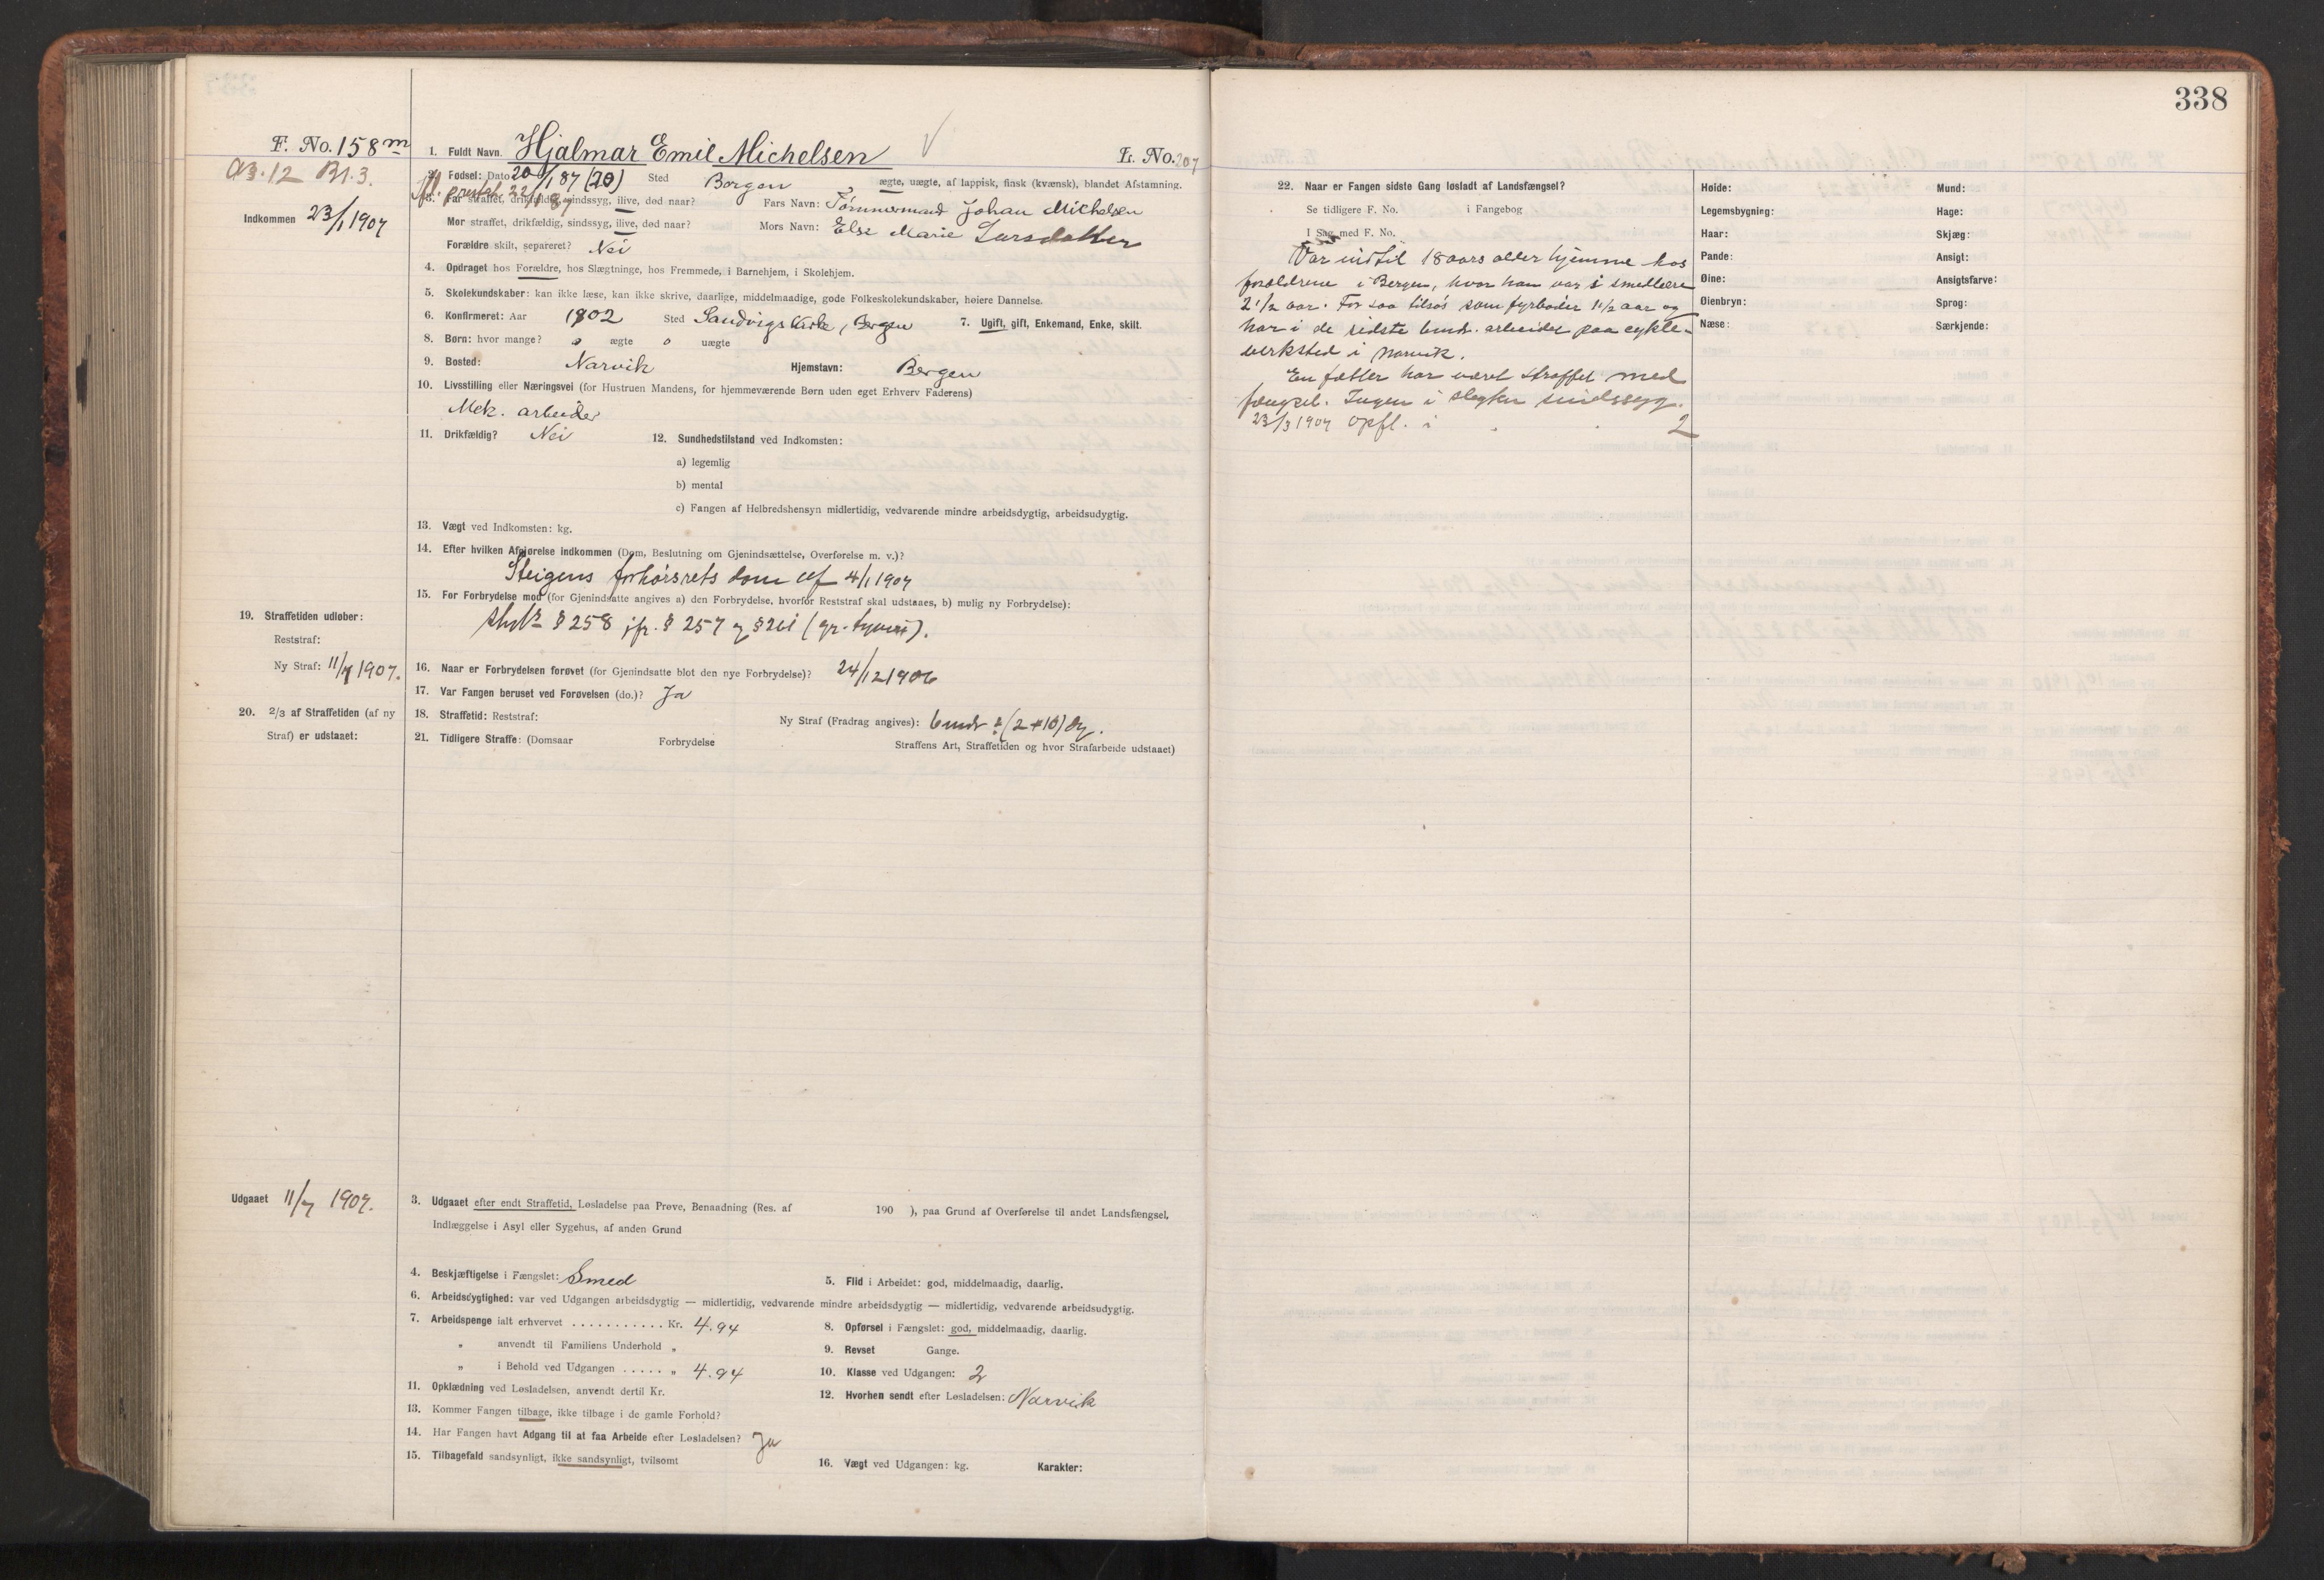 338
F. No. 158 m
1. Fuldt Navn. Hjalmar Emil Michelsen
L. No. 207
A3.12 B1.3.
2. Fødsel: Dato 20/1 87 (20) Sted Bergen ægte, uægte, af lappisk, finsk (kvænsk), blandet Afstamning.
ifl. prestet. 22/1 87
Indkommen 23/1 1907
3. Far straffet, drikfældig, sindssyg, ilive, død naar? Fars Navn: Tömmermand Johan Michelsen
Mor straffet, drikfældig, sindssyg, ilive, død naar? Mors Navn: Else Marie Larsdatter
Forældre skilt, separeret? Nei
4. Opdraget hos Forældre, hos Slægtninge, hos Fremmede, i Barnehjem, i Skolehjem.
5. Skolekundskaber: kan ikke læse, kan ikke skrive, daarlige, middelmaadige, gode Folkeskolekundskaber, høiere Dannelse.
6. Konfirmeret: Aar 1902 Sted Sandvigs Kirke, Bergen 7. Ugift, gift, Enkemand, Enke, skilt.
8. Børn: hvor mange? 0 ægte 0 uægte
9. Bosted: Narvik Hjemstavn: Bergen
10. Livsstilling eller Næringsvei (for Hustruen Mandens, for hjemmeværende Børn uden eget Erhverv Faderens)
Mek. arbeider
11. Drikfældig? Nei 12. Sundhedstilstand ved Indkomsten:
a) legemlig
b) mental
c) Fangen af Helbredshensyn midlertidig, vedvarende mindre arbeidsdygtig, arbeidsudygtig.
13. Vægt ved Indkomsten: kg.
14. Efter hvilken Afgjørelse indkommen (Dom, Beslutning om Gjenindsættelse, Overførelse m. v.)?
Steigens forhörsrets dom af 4/1 1907
15. For Forbrydelse mod (for Gjenindsatte angives a) den Forbrydelse, hvorfor Reststraf skal udstaaes, b) mulig ny Forbrydelse):
§ 258 jfr. § 257 og § 261 (gr. tyveri).
19. Straffetiden udløber:
Reststraf:
Ny Straf: 11/7 1907.
16. Naar er Forbrydelsen forøvet (for Gjenindsatte blot den nye Forbrydelse)? 24/12 1906
17. Var Fangen beruset ved Forøvelsen (do.)? Ja
20. 2/3 af Straffetiden (af ny
Straf) er udstaaet:
18. Straffetid: Reststraf: Ny Straf (Fradrag angives): 6 mdr ÷ (2+10) dg.
21. Tidligere Straffe: (Domsaar Forbrydelse Straffens Art, Straffetiden og hvor Strafarbeide udstaaet)
Udgaaet 11/7 1907.
3. Udgaaet efter endt Straffetid, Løsladelse paa Prøve, Benaadning (Res. af 190 ), paa Grund af Overførelse til andet Landsfængsel,
Indlæggelse i Asyl eller Sygehus, af anden Grund
4. Beskjæftigelse i Fængslet: Smed 5. Flid i Arbeidet: god, middelmaadig, daarlig.
6. Arbeidsdygtighed: var ved Udgangen arbeidsdygtig — midlertidig, vedvarende mindre arbeidsdygtig — midlertidig, vedvarende arbeidsudygtig.
7. Arbeidspenge ialt erhvervet . . . . . . . . . . . Kr. 4.94 8. Opførsel i Fængslet: god, middelmaadig, daarlig.
„ anvendt til Familiens Underhold „ 9. Revset Gange.
„ i Behold ved Udgangen . . . . . „ 4.94 10. Klasse ved Udgangen: 2
11. Opklædning ved Løsladelsen, anvendt dertil Kr. 12. Hvorhen sendt efter Løsladelsen: Narvik
13. Kommer Fangen tilbage, ikke tilbage i de gamle Forhold?
14. Har Fangen havt Adgang til at faa Arbeide efter Løsladelsen? Ja
15. Tilbagefald sandsynligt, ikke sandsynligt, tvilsomt 16. Vægt ved Udgangen: kg. Karakter:
22. Naar er Fangen sidste Gang løsladt af Landsfængsel?
Se tidligere F. No. i Fangebog
I Sag med F. No.
Var indtil 18 aars alder hjemme hos
forældrene i Bergen, hvor han var i smedlære
2 1/2 aar. For saa tilsös som fyrböder 1 1/2 aar og
har i de sidste 6 mdr. arbeidet paa cykle-
verksted i Narvik.
En fætter har været straffet med
fængsel. Ingen i slegten sindssyg.
23/3 1907 opfl. i 2
Høide: Mund:
Legemsbygning: Hage:
Haar: Skjæg:
Pande: Ansigt:
Øine: Ansigtsfarve:
Øienbryn: Sprog:
Næse: Særkjende: